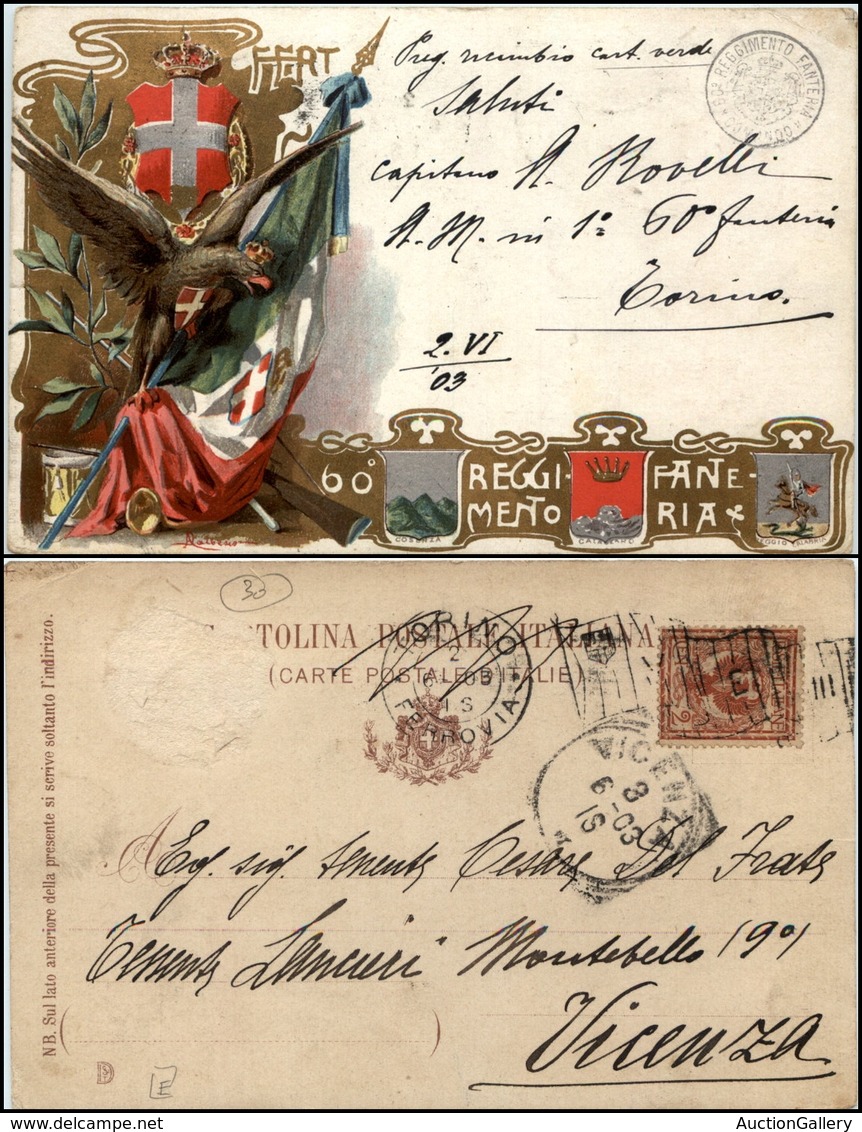 FERT
Preg. ricambio cart. verde
Saluti
capitano A. Rovelli
A. M. in 1ª 60º fanteria
Torino.
2. VI
'03
REGGIMENTO FANTERIA
60º REGGI- FANTE-
MENTO RIA
COSENZA
CATANZARO
REGGIO CALABRIA
30
CARTOLINA POSTALE ITALIANA
(CARTE POSTALE D'ITALIE)
TORINO
FERROVIA
VICENZA
8
6-03
NB. Sul lato anteriore della presente si scrive soltanto l'indirizzo.
A
Egr. sig. tenente Cesare Del Frate
Tenente Lancieri Montebello (9º)
Vicenza
E
AuctionGallery